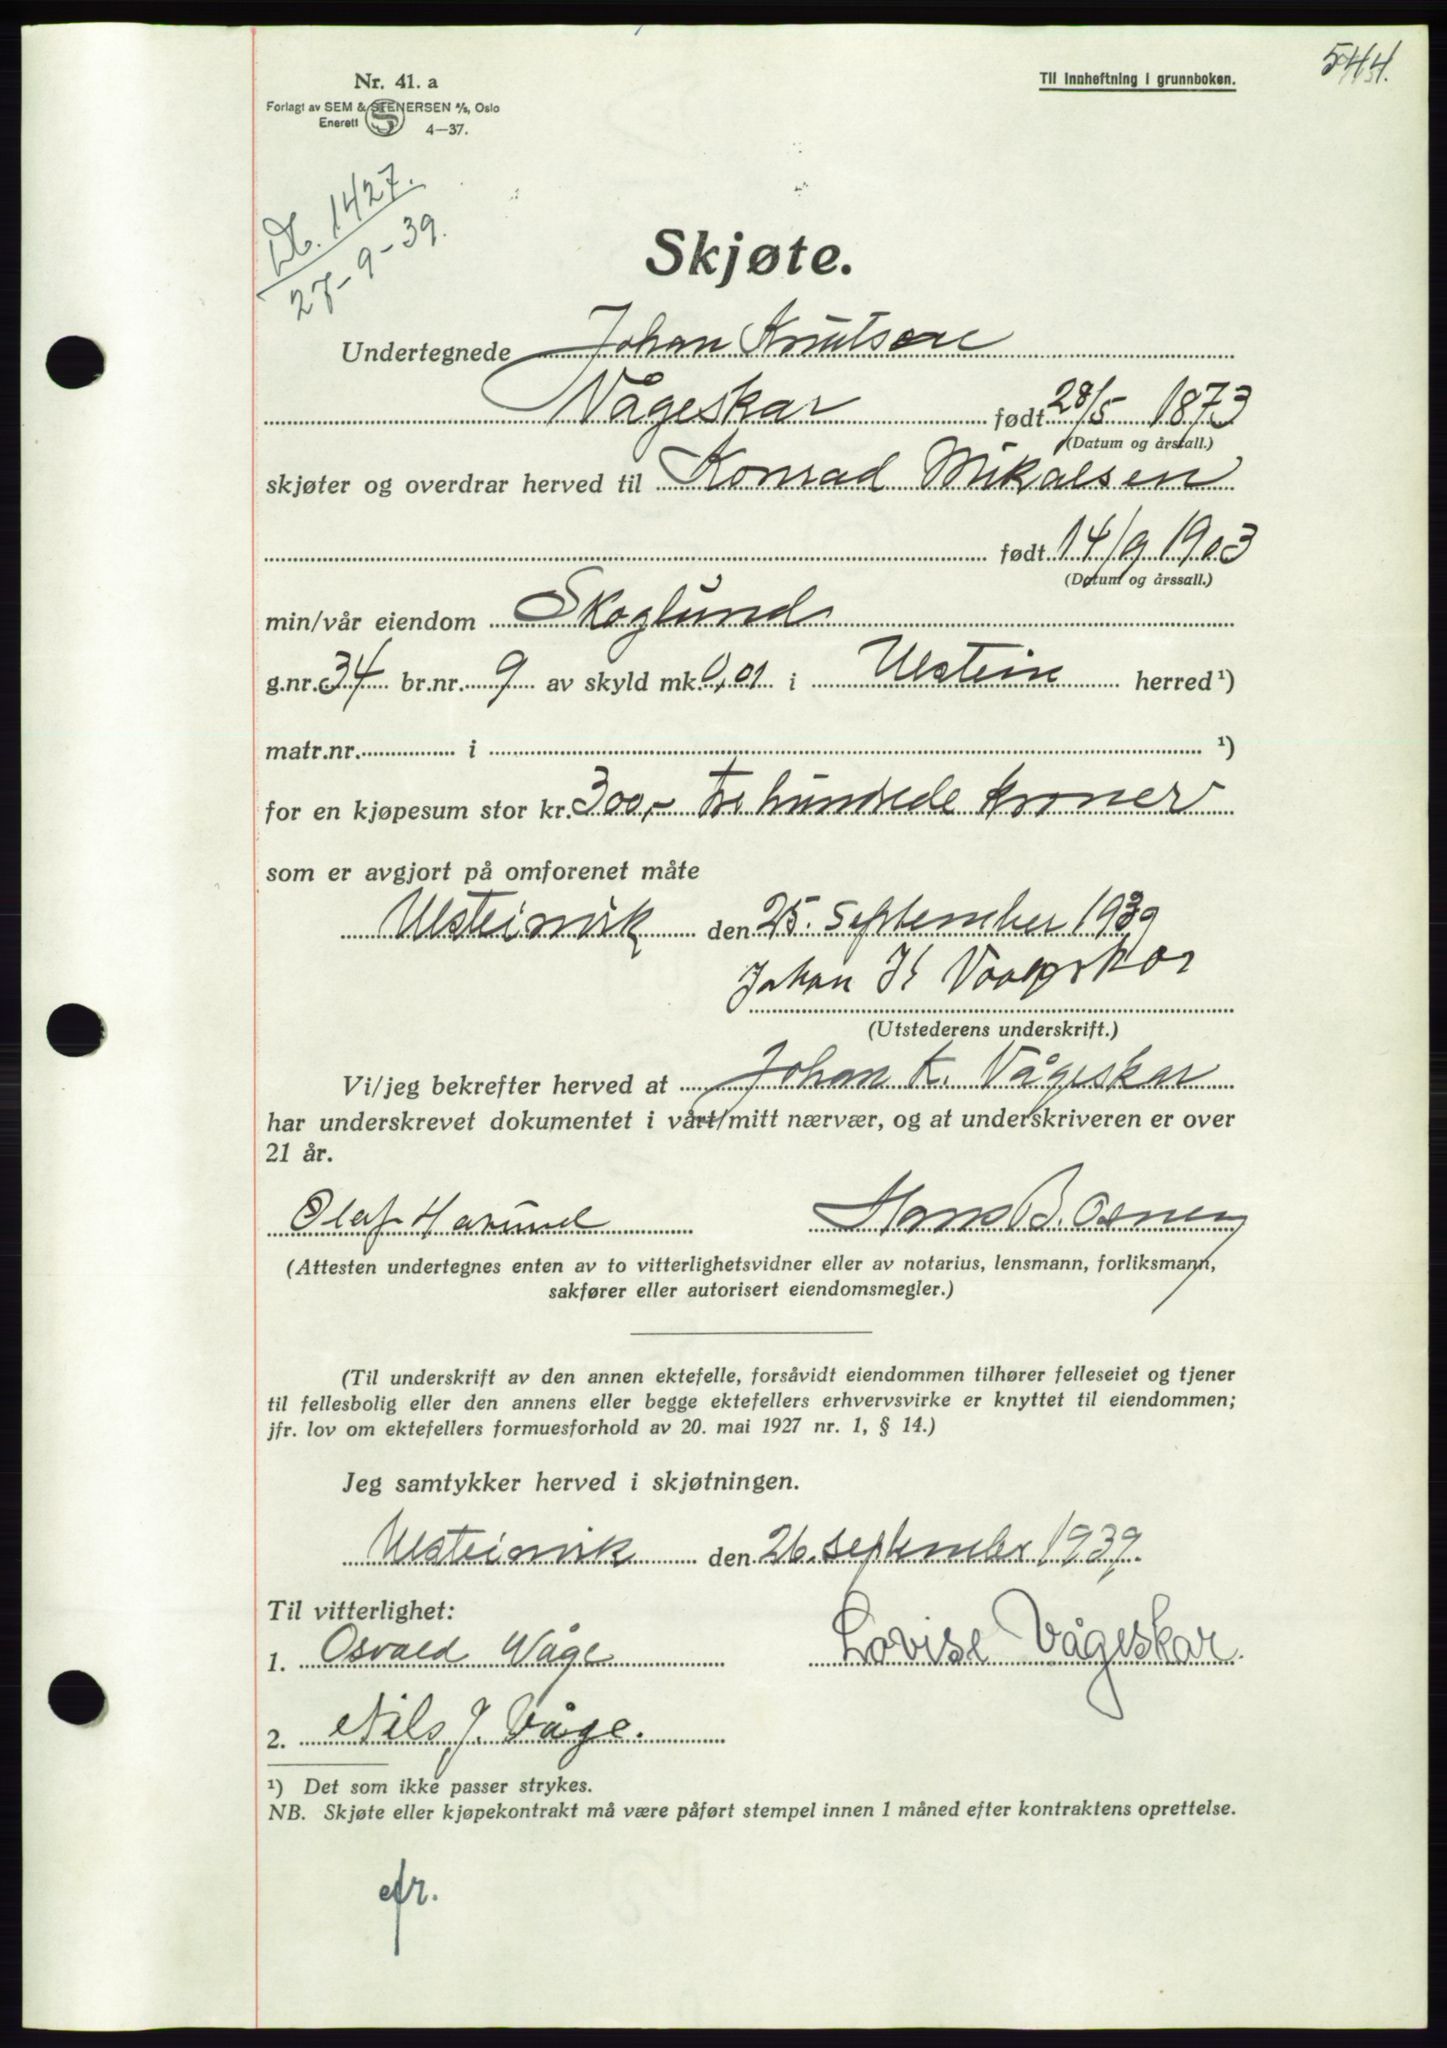 544.
Nr. 41. a
Til innheftning i grunnboken.
Forlagt av SEM & STENERSEN A/S, Oslo
Enerett
4—37.
Db. 1427.
27-9-39.
Skjøte.
Undertegnede Johan Knutsen
Vågeskar født 28/5 1873
(Datum og årstall.)
skjøter og overdrar herved til Konrad Mikalsen
født 14/9 1903
(Datum og årssall.)
min/vår eiendom Skoglund
g.nr. 34 br.nr. 9 av skyld mk. 0,01 i Ulstein herred¹)
matr.nr. i ¹)
for en kjøpesum stor kr. 300,- tre hundrede kroner
som er avgjort på omforenet måte
Ulsteinvik den 25. september 1939
Johan K Vaageskar
(Utstederens underskrift.)
Vi/jeg bekrefter herved at Johan K. Vågeskar
har underskrevet dokumentet i vårt/mitt nærvær, og at underskriveren er over
21 år.
Olaf Hans B. Osnes
(Attesten undertegnes enten av to vitterlighetsvidner eller av notarius, lensmann, forliksmann,
sakfører eller autorisert eiendomsmegler.)
(Til underskrift av den annen ektefelle, forsåvidt eiendommen tilhører felleseiet og tjener
til fellesbolig eller den annens eller begge ektefellers erhvervsvirke er knyttet til eiendommen;
jfr. lov om ektefellers formuesforhold av 20. mai 1927 nr. 1, § 14.)
Jeg samtykker herved i skjøtningen.
Ulsteinvik den 26. september 1939.
Til vitterlighet:
1. Osvald Våge Lovise Vågeskar.
2. Nils J. Våge.
¹) Det som ikke passer strykes.
NB. Skjøte eller kjøpekontrakt må være påført stempel innen 1 måned efter kontraktens oprettelse.